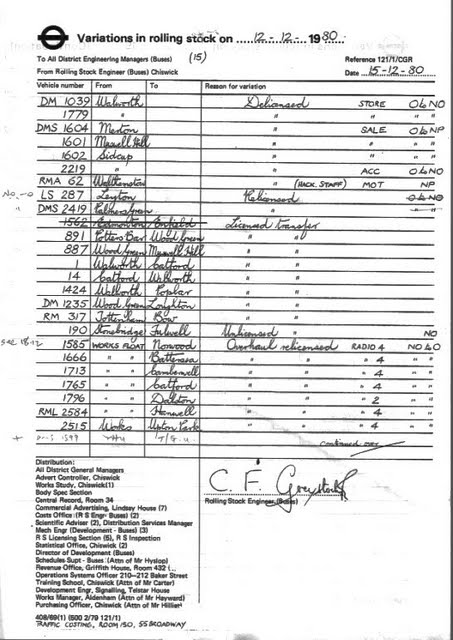 Variations in rolling stock on 12-12-1980
To All District Engineering Managers (Buses) (15) Reference 121/1/CGR
From Rolling Stock Engineer (Buses) Chiswick Date 15-12-80
Vehicle number From To Reason for variation
DM 1039 Walworth Delicensed STORE ObNO
1779 " " " " "
DMS 1604 Merton " SALE ObNP
1601 Muswell Hill " " " "
1602 Sidcup " " " "
2219 " " ACC ObNO
RMA 62 Walthamstow " (HACK. STAFF) MOT NP
LS 287 Leyton Relicensed ObNO
DMS 2419 Palmers Green " " "
1562 Edmonton Enfield Licensed transfer
891 Potters Bar Wood Green " "
887 Wood Green Muswell Hill " "
1 Walworth Catford " "
14 Catford Walworth " "
1424 Walworth Poplar " "
DM 1235 Wood Green Loughton " "
RM 317 Tottenham Bow " "
190 Stonebridge Fulwell Unlicensed " NO
see 18.12 1585 WORKS FLOAT Norwood Overhaul relicensed RADIO 4
1666 " " Battersea " " " 4 " "
1713 " " Camberwell " " " 4 " "
1765 " " Catford " " " 4 " "
1796 " " Dalston " " " 2 " "
RML 2584 " " Hanwell " " " 4 " "
2515 Works Upton Park " " " 4 " "
continued over
Distribution:
All District General Managers
Advert Controller, Chiswick
Works Study, Chiswick(1)
Body Spec Section
Central Record, Room 34
Commercial Advertising, Lindsey House (7)
Costs Office (R S Engr- Buses) (2)
Scientific Adviser (2), Distribution Services Manager
Mech Engr (Development - Buses) (3)
R S Licensing Section (5), R S Inspection
Statistical Office, Chiswick (2)
Director of Development (Buses)
Schedules Supt - Buses (Attn of Mr Hyslop)
Revenue Office, Griffith House, Room 432
Operations Systems Officer 210-212 Baker Street
Training School, Chiswick (Attn of Mr Carter)
Development Engr, Signalling, Telstar House
Works Manager, Aldenham (Attn of Mr Hayward)
Purchasing Officer, Chiswick (Attn of Mr Hillier)
C. F.
Rolling Stock Engineer (Buses)
408/69(1) (500 2/79 121/1)
TRAFFIC COSTING, ROOM 150, 55 BROADWAY